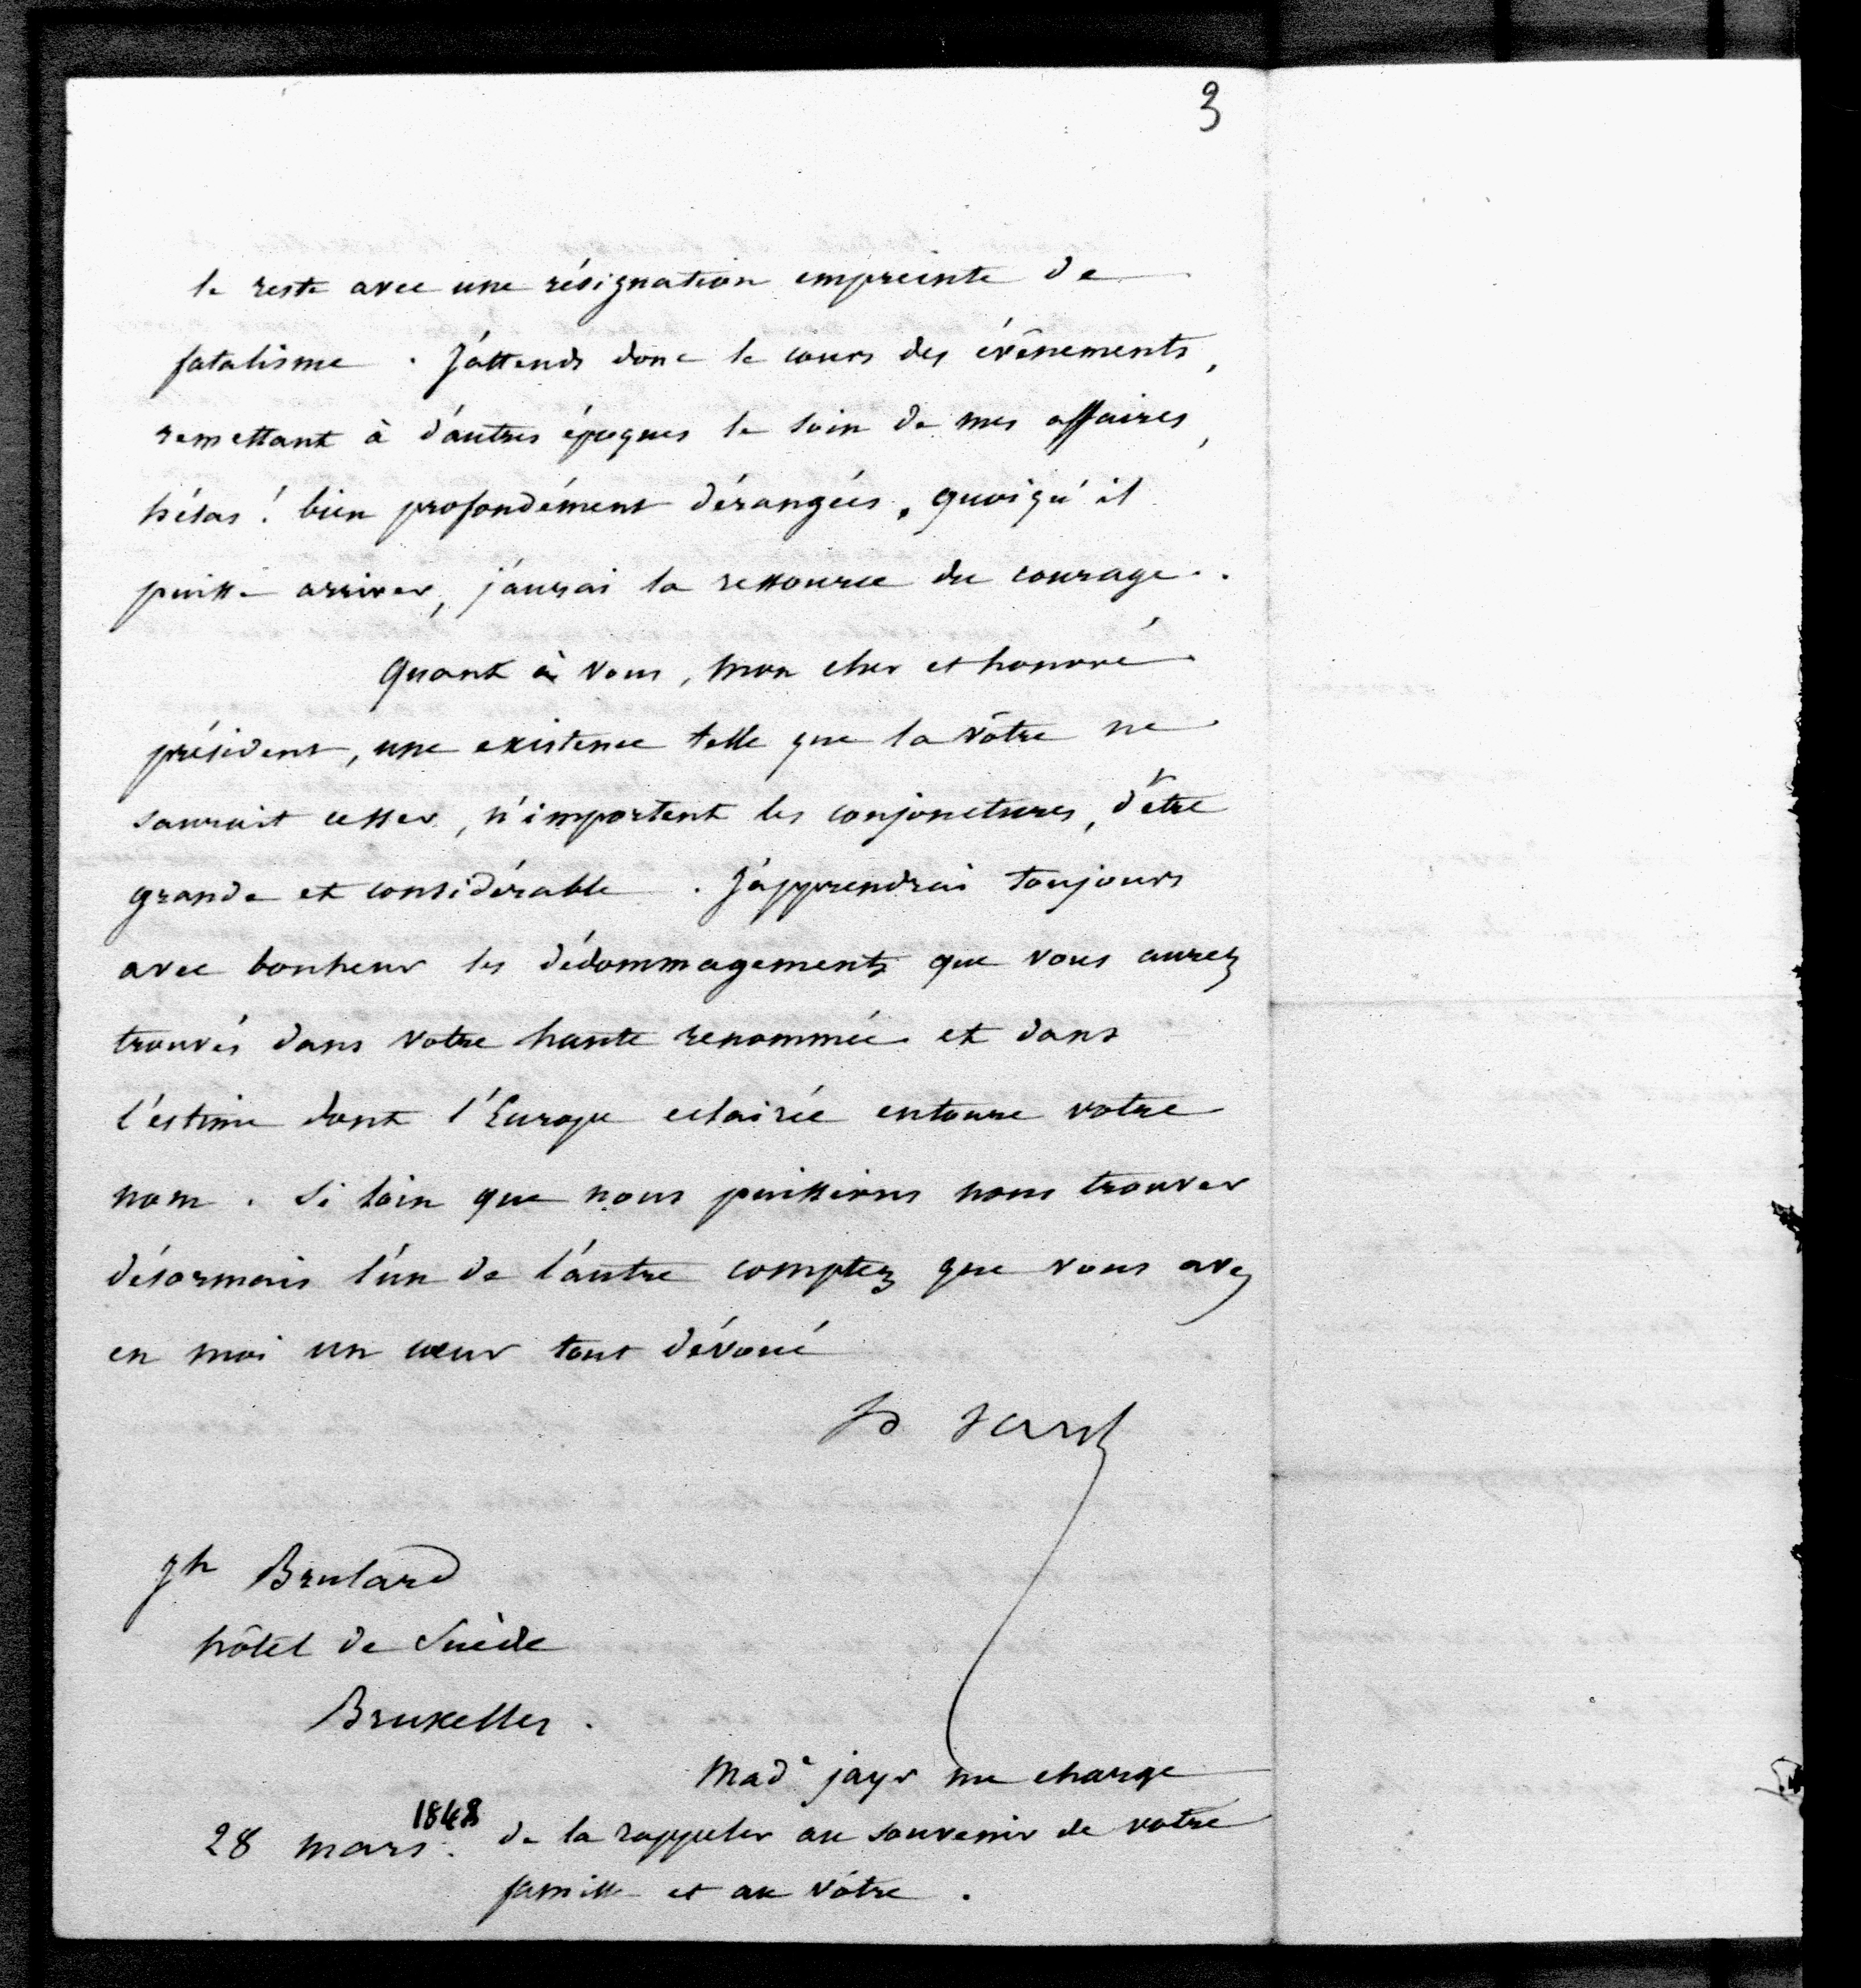 3
le reste avec une résignation empreinte de
fatalisme. J'attends donc le cours des évênements,
remettant à d'autres époques le soin de mes affaires,
hélas! bien profondément dérangées. quoiqu'il
puisse arriver, j'aurai la ressource du courage.
Quant à vous, mon cher et honoré
président, une existence telle que la vôtre ne
saurait cesser, n'importent les conjonctures, d'être
grande et considérable. J'apprendrai toujours
avec bonheur les dédommagements que vous aurez
trouvés dans votre haute renommée et dans
l'estime dont l'Europe eclairée entoure votre
nom. Si loin que nous puissions nous trouver
désormais l'un de l'autre comptez que vous avez
en moi un cœur tout dévoué
Jh Brulard
hôtel de Suède
Bruxelles.
Made jayr me charge
28 mars. 1848 de la rappeler au souvenir de votre
famille et au vôtre.